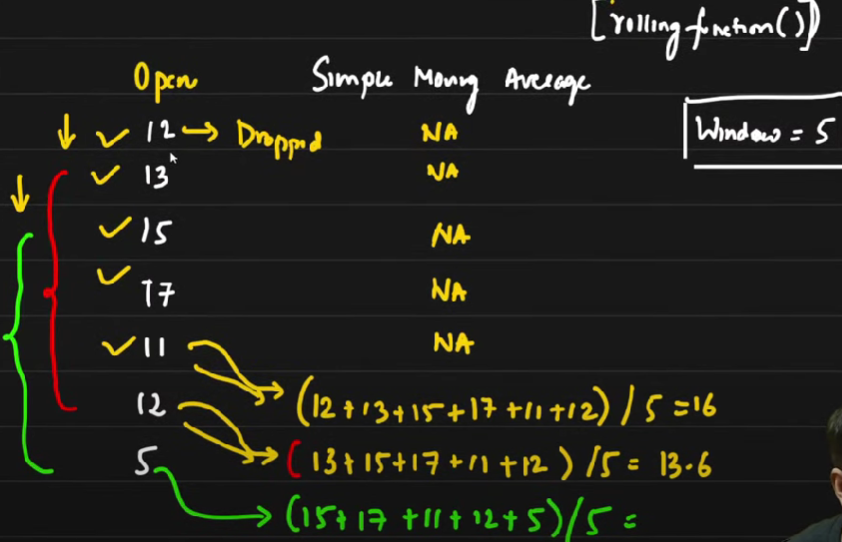 [rolling function()]
Open Simple Moving Average
Window = 5
12 → Dropped NA
13 NA
15 NA
17 NA
11 NA
12 (12+13+15+17+11+12) / 5 = 16
5 (13+15+17+11+12) / 5 = 13.6
(15+17+11+12+5) / 5 =